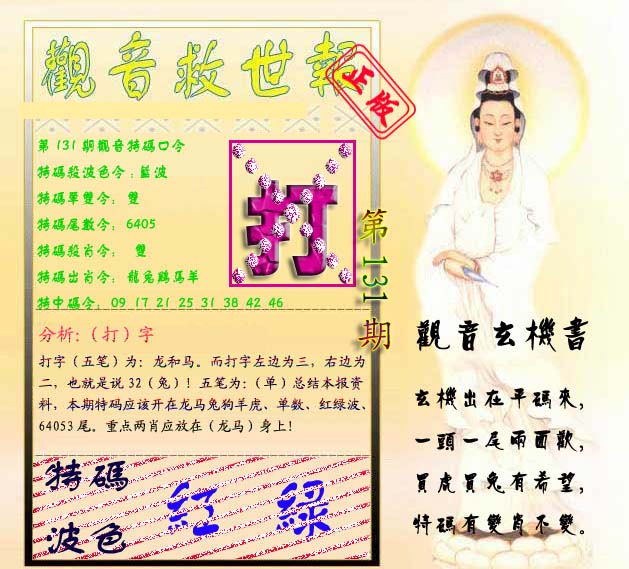 觀音救世報
正版
第131期觀音特碼口令
特碼殺波色令:藍波
特碼單雙令: 雙
特碼尾數令: 6405
特碼殺肖令: 雙
特碼出肖令: 龍兔鷄馬羊
特中碼令: 09 17 21 25 31 38 42 46
打
第131期
分析:（打）字
打字（五笔）为：龙和马。而打字左边为三，右边为
二，也就是说32（兔）！五笔为：（单）总结本报资
料，本期特码应该开在龙马兔狗羊虎、单数、红绿波、
64053尾。重点两肖应放在（龙马）身上！
特碼
波色
紅 綠
觀音玄機書
玄機出在平碼來,
一頭一尾兩面歡,
買虎買兔有希望,
特碼有雙肖不變。